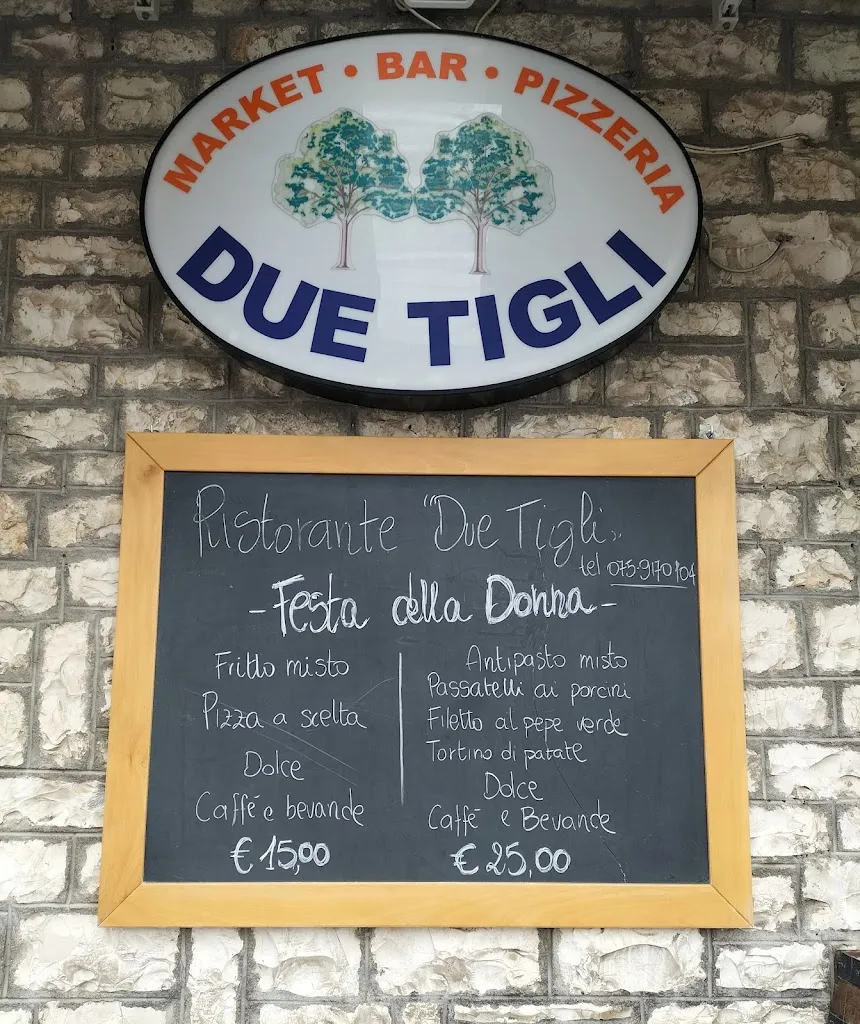 MARKET • BAR • PIZZERIA
DUE TIGLI
Ristorante "Due Tigli"
tel 075-9170104
- Festa della Donna -
Fritto misto
Pizza a scelta
Dolce
Caffé e bevande
€ 15,00
Antipasto misto
Passatelli ai porcini
Filetto al pepe verde
Tortino di patate
Dolce
Caffé e Bevande
€ 25,00